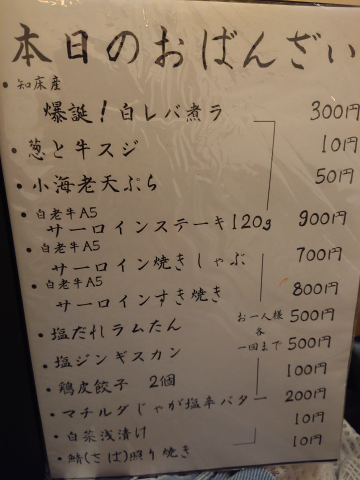 本日のおばんざい
・知床産
爆誕！白レバ煮ラ 300円
・葱と牛スジ 10円
・小海老天ぷら 50円
・白老牛A5
サーロインステーキ120g 900円
・白老牛A5
サーロイン焼きしゃぶ 700円
・白老牛A5
サーロインすき焼き 800円
・塩だれラムたん 500円
お一人様
各
一回まで
・塩ジンギスカン 500円
・鶏皮餃子 2個 100円
・マチルダじゃが塩辛バター 200円
・白菜浅漬け 10円
・鯖(さば)照り焼き 10円